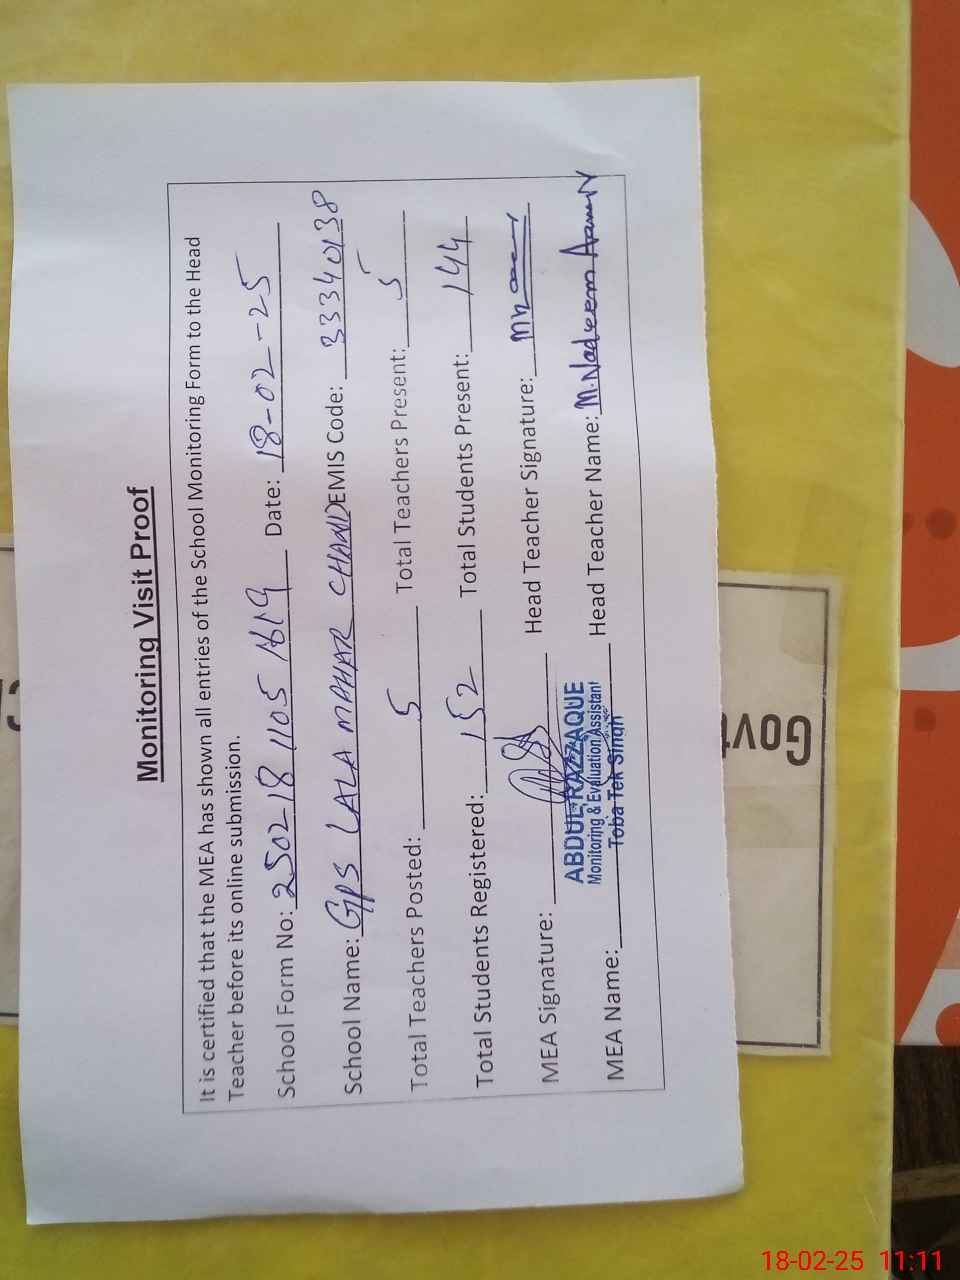 Monitoring Visit Proof
It is certified that the MEA has shown all entries of the School Monitoring Form to the Head
Teacher before its online submission.
School Form No: 25021811051619 Date: 18-02-25
School Name: GPS LALA MAHAR CHAND EMIS Code: 33340138
Total Teachers Posted: 5 Total Teachers Present: 5
Total Students Registered: 152 Total Students Present: 144
MEA Signature: Head Teacher Signature:
ABDUL RAZZAQUE
Monitoring & Evaluation Assistant
Toba Tek Singh
MEA Name: Head Teacher Name: M. Nadeem
Govt
18-02-25 11:11